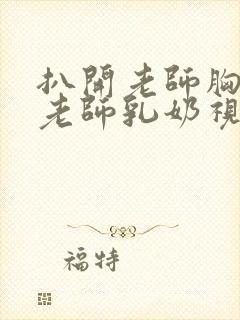 扒開老師胸
老師乳奶視
福特